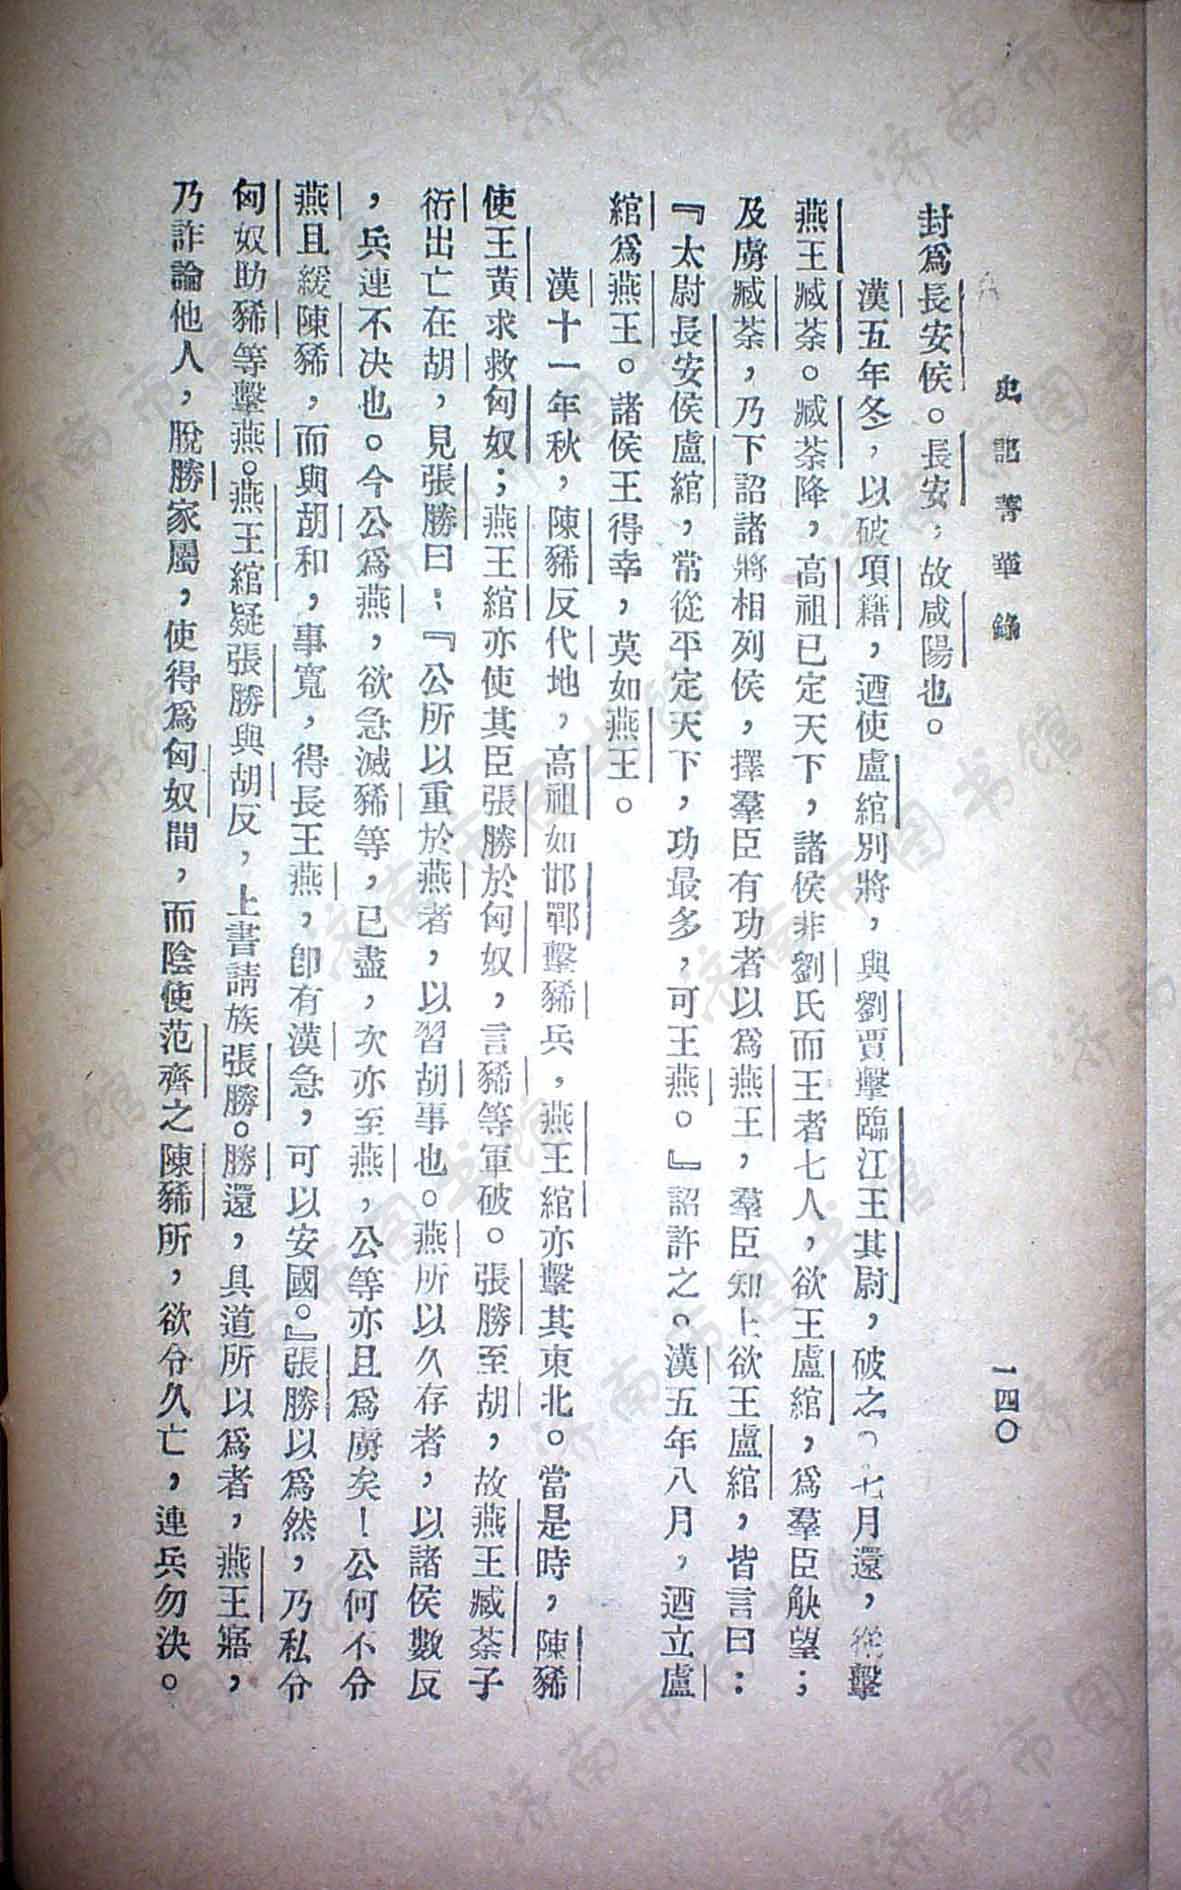 史記菁華錄
一四〇
封爲長安侯。長安，故咸陽也。
漢五年冬，以破項籍，迺使盧綰別將，與劉賈擊臨江王其尉，破之。七月還，從擊
燕王臧荼。臧荼降，高祖已定天下，諸侯非劉氏而王者七人，欲王盧綰，爲羣臣觖望；
及虜臧荼，乃下詔諸將相列侯，擇羣臣有功者以爲燕王，羣臣知上欲王盧綰，皆言曰：
『太尉長安侯盧綰，常從平定天下，功最多，可王燕。』詔許之。漢五年八月，迺立盧
綰爲燕王。諸侯王得幸，莫如燕王。
漢十一年秋，陳豨反代地，高祖如邯鄲擊豨兵，燕王綰亦擊其東北。當是時，陳豨
使王黃求救匈奴；燕王綰亦使其臣張勝於匈奴，言豨等軍破。張勝至胡，故燕王臧荼子
衍出亡在胡，見張勝曰：『公所以重於燕者，以習胡事也。燕所以久存者，以諸侯數反
，兵連不決也。今公爲燕，欲急滅豨等，已盡，次亦至燕，公等亦且爲虜矣！公何不令
燕且緩陳豨，而與胡和，事寬，得長王燕，卽有漢急，可以安國。』張勝以爲然，乃私令
匈奴助豨等擊燕。燕王綰疑張勝與胡反，上書請族張勝。勝還，具道所以爲者，燕王寤，
乃詐論他人，脫勝家屬，使得爲匈奴間，而陰使范齊之陳豨所，欲令久亡，連兵勿決。
济南市图书馆